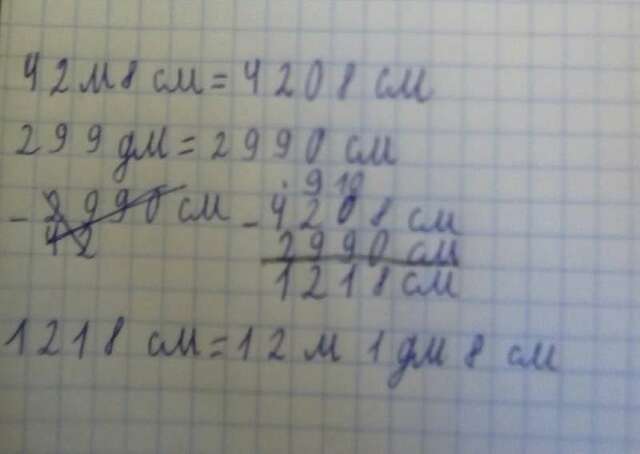 42м8 см = 4208 см
299 дм = 2990 см
- 2990 см
42
. 9 10
- 4208 см
2990 см
1218 см
1218 см = 12 м 1 дм 8 см